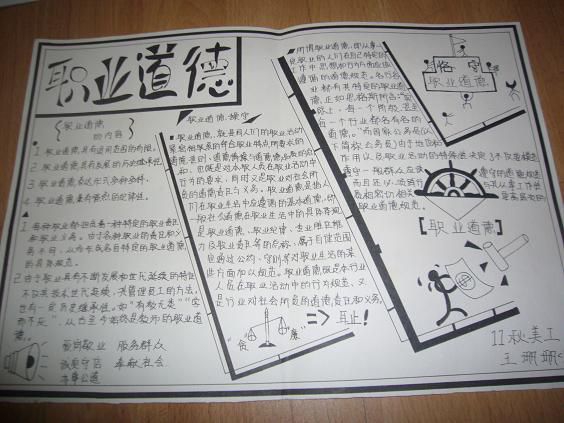 职业道德
职业道德
的内容
1 职业道德具有适用范围的有限性。
2 职业道德具有发展的历史继承性。
3 职业道德表达形式多种多样。
4 职业道德兼有强烈的纪律性。
1 每种职业都担负着一种特定的职业责任
和职业义务。由于各种职业的责任和义
务不同,从而形成各自特定的职业道德
的具体规范。
2 由于职业具有不断发展和世代延续的特征
不仅其技术世代延续,其管理员工的方法,
也有一定历史继承性。如“有教无类”“学
而不厌”,从古至今始终是教师的职业道
德。
爱岗敬业 服务群众
诚实守信 奉献社会
办事公道
职业道德,操守
职业道德,就是同人们的职业活动
紧密联系的符合职业特点所要求的
道德准则、道德情操与道德品质的总
和,它既是对本职人员在职业活动中
行为的要求,同时又是职业对社会所
负的道德责任与义务。职业道德是指人
们在职业生活中应遵循的基本道德,即
一般社会道德在职业生活中的具体体现
是职业道德、职业纪律、专业胜任能
力及职业责任等的总称,属于自律范围
它通过公约、守则等对职业生活的某
些方面加以规范。职业道德既是本行业
人员在职业活动中的行为规范,又
是行业对社会所负的道德责任和义务。
“贪” “廉” => 耻!
所谓职业道德,即从事一
定职业的人们在自己特定的
工作中思想和行为所应该
遵循的道德规范。
业都有其特定的职业道
德,正如恩格斯所言:“实
际上,每一个阶级,甚至
每一个行业都各有各的
道德。”而国家公务员(以
下简称公务员)由于地位和
作用以及职业活动的特殊性决定了不仅要模范
恪 守
职业道德
[职业道德]
11秋美工
王珊珊